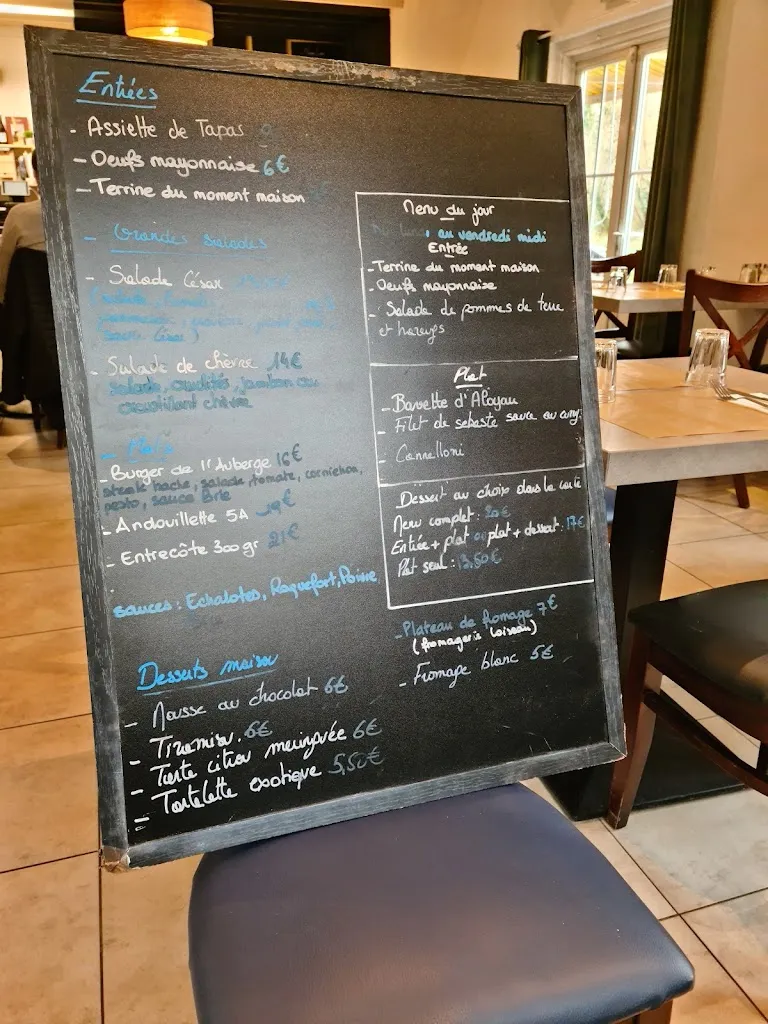 Entrées
- Assiette de Tapas
- Oeufs mayonnaise 6€
- Terrine du moment maison
- Grandes Salades
- Salade César
- Salade de chèvre 14€
salade, crudités, jambon cru
croustillant chèvre
- Plats
- Burger de l'Auberge 16€
steak haché, salade, tomate, cornichon,
pesto, sauce Brie
- Andouillette 5A 19€
- Entrecôte 300gr 21€
sauces: Echalotes, Roquefort, Poivre
Desserts maison
- Mousse au chocolat 6€
- Tiramisu. 6€
- Tarte citron meringuée 6€
- Tartelette exotique 5,50€
Menu du jour
au vendredi midi
Entrée
- Terrine du moment maison
- Oeufs mayonnaise
- Salade de pommes de terre
et harengs
Plat
- Bavette d'Aloyau
- Filet de sebaste sauce au curry
- Cannelloni
Dessert au choix dans la carte
Menu complet: 20€
Entrée + plat ou plat + dessert: 17€
Plat seul: 13,50€
- Plateau de fromage 7€
(fromagerie Loiseau)
- Fromage blanc 5€